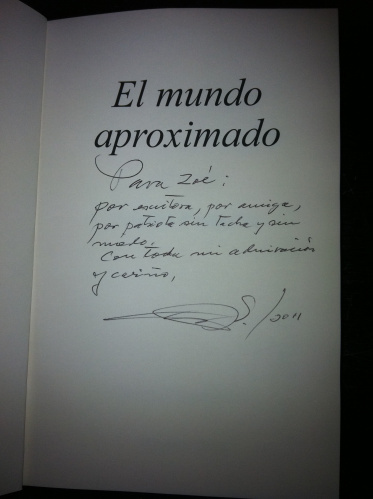 El mundo
aproximado
Para Zoé:
por escritora, por amiga,
por patriota sin tacha y sin
miedo.
Con toda mi admiración
y cariño,
S./2011